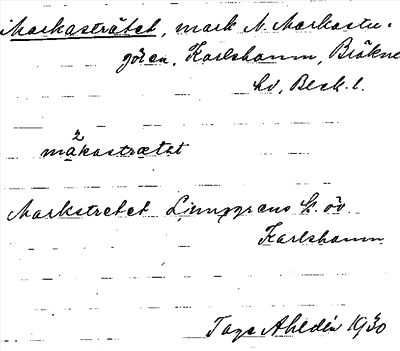 Markasträtet, mark N. Markastu-
gören, Karlshamn, Bräkne
hd, Blek. l.
2
måkastrætət
Markstretet Ljunggrens k. öv
Karlshamn
Tage Ahldén 1930